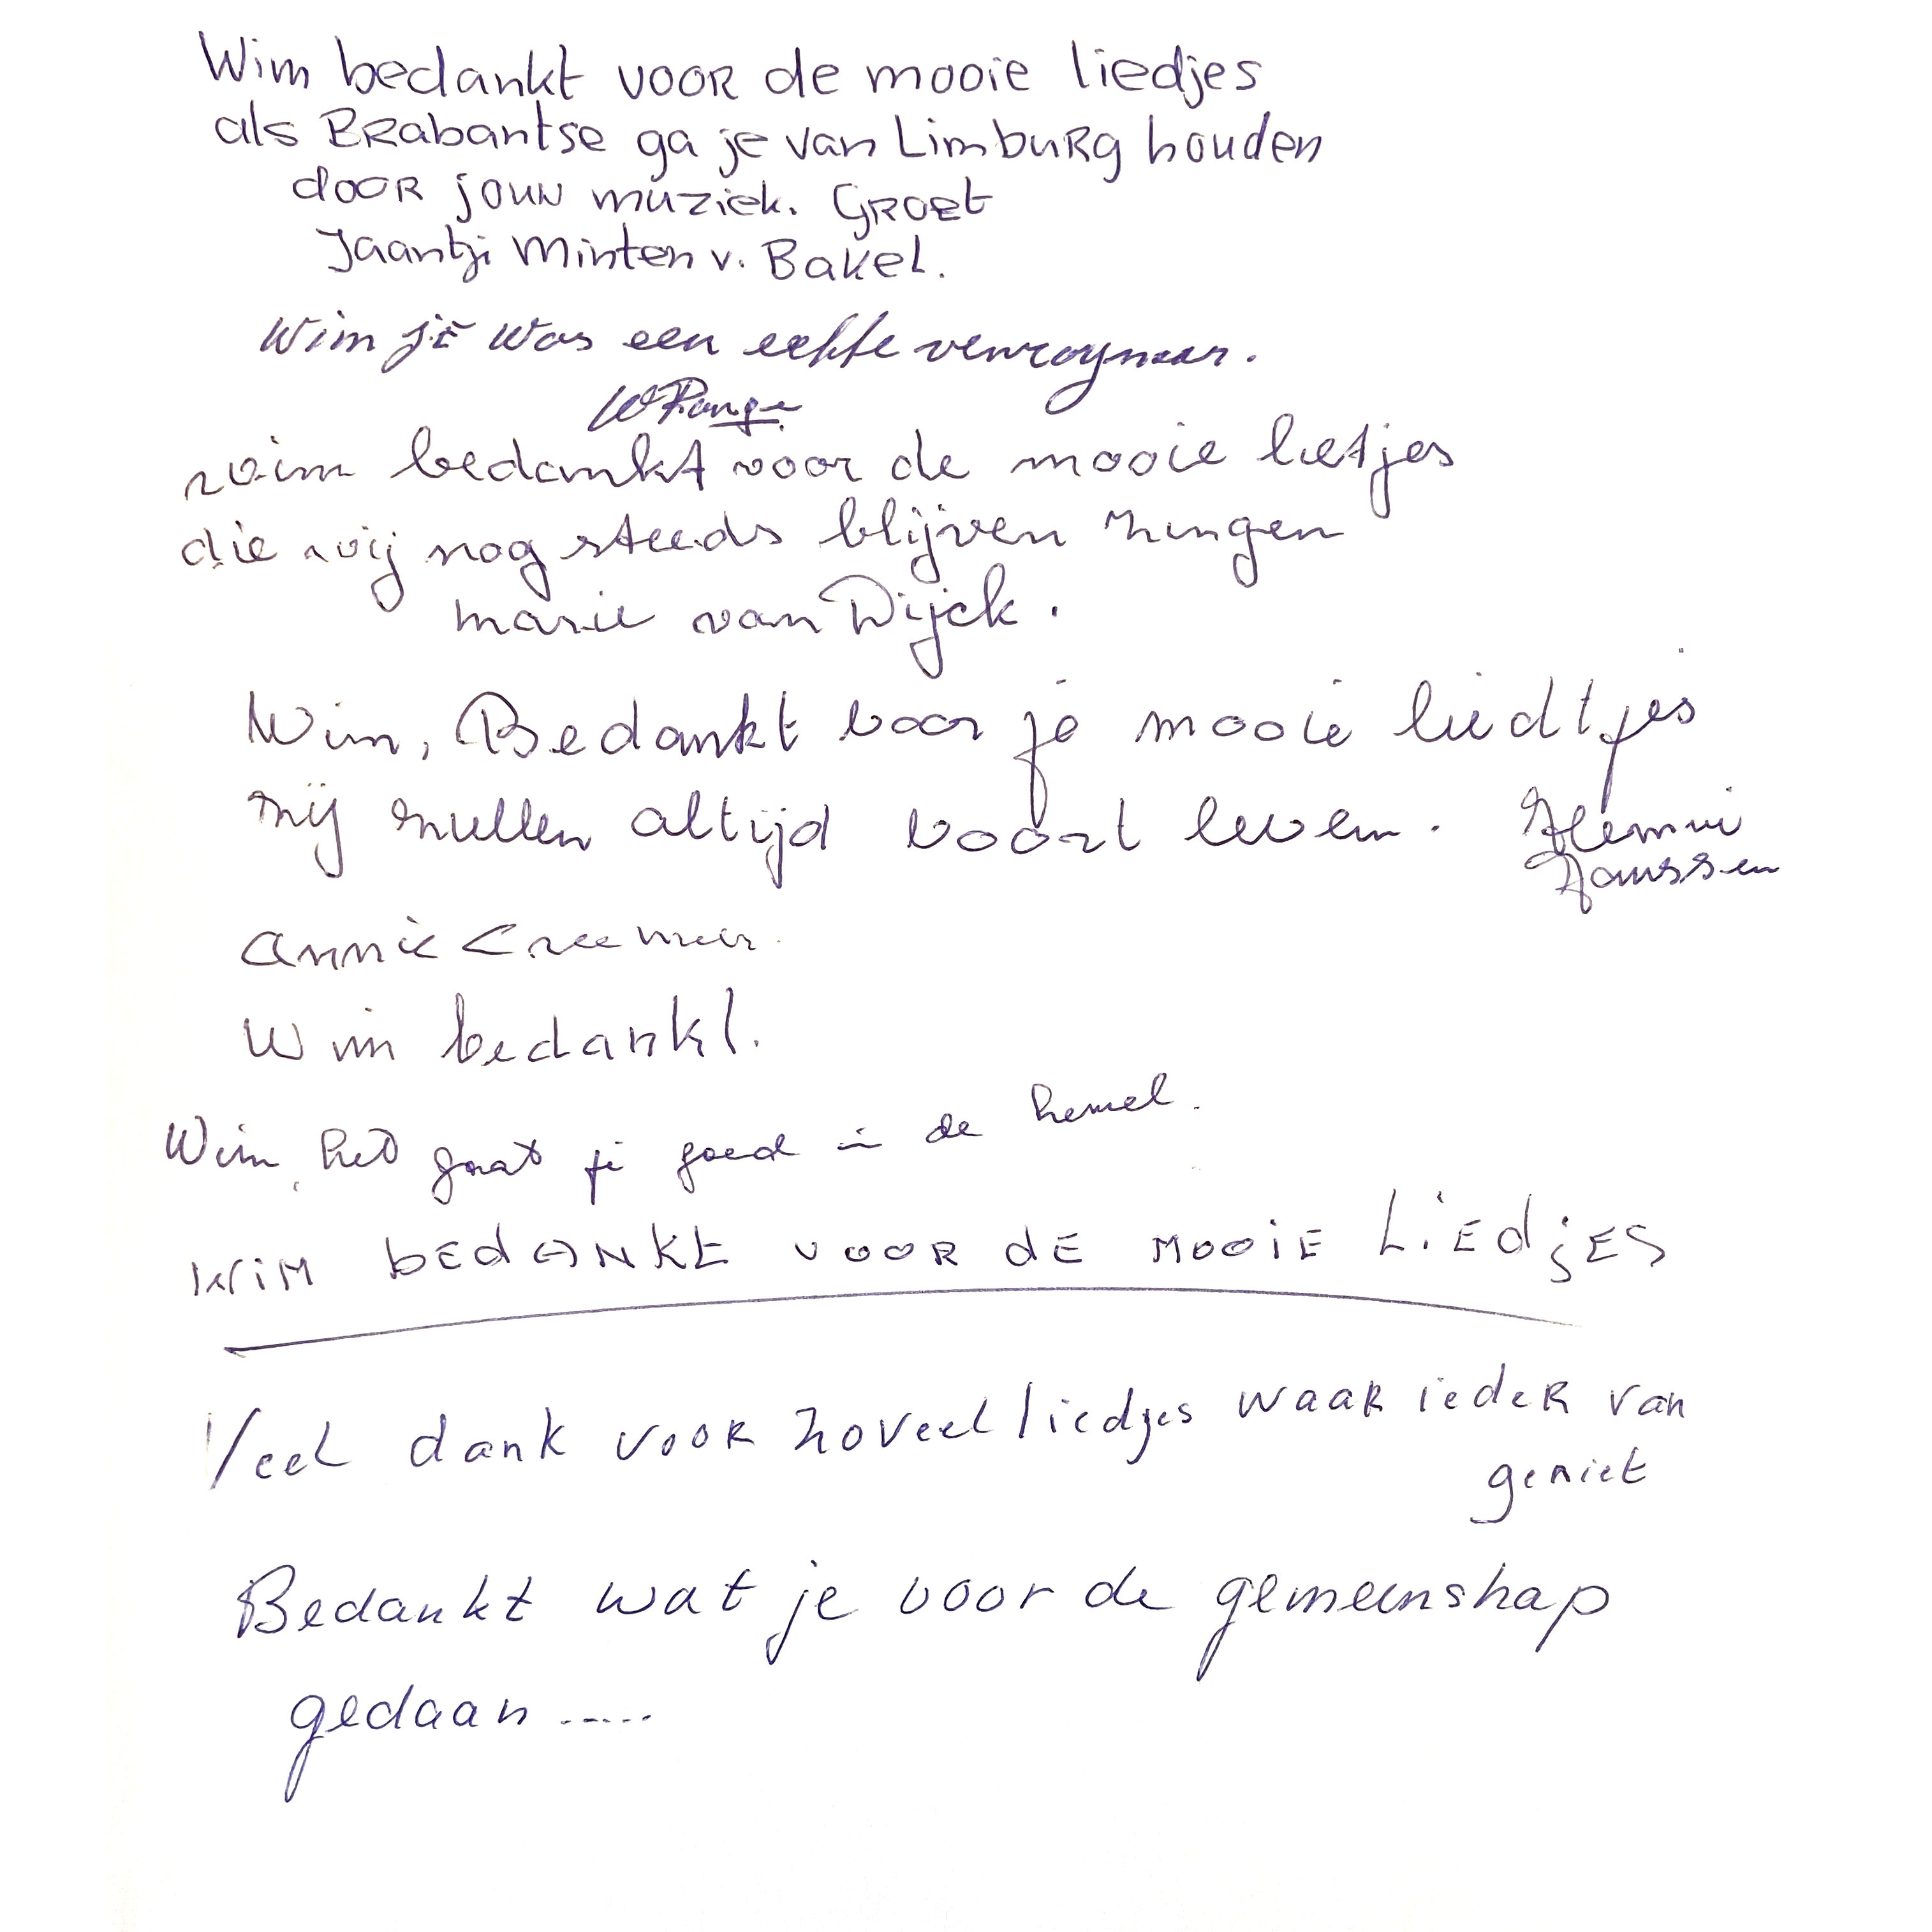 Wim bedankt voor de mooie liedjes
als Brabantse ga je van Limburg houden
door jouw muziek. Groet
Jaantje Minten v. Bakel.
Wim je was een echte venroymer.
wim bedankt voor de mooie lietjes
die wij nog steeds blijven zingen
marie van Dijck.
Wim, Bedankt voor je mooie liedtjes
zij zullen altijd voort leven. Hennie
Janssen
annie Creemer.
Wim bedankt.
Wim, het gaat je goed in de hemel.
WiM bEdANKt VOOR dE MOOiE LiEdjES
Veel dank voor zoveel liedjes waar ieder van
geniet
Bedankt wat je voor de gemeenshap
gedaan .....